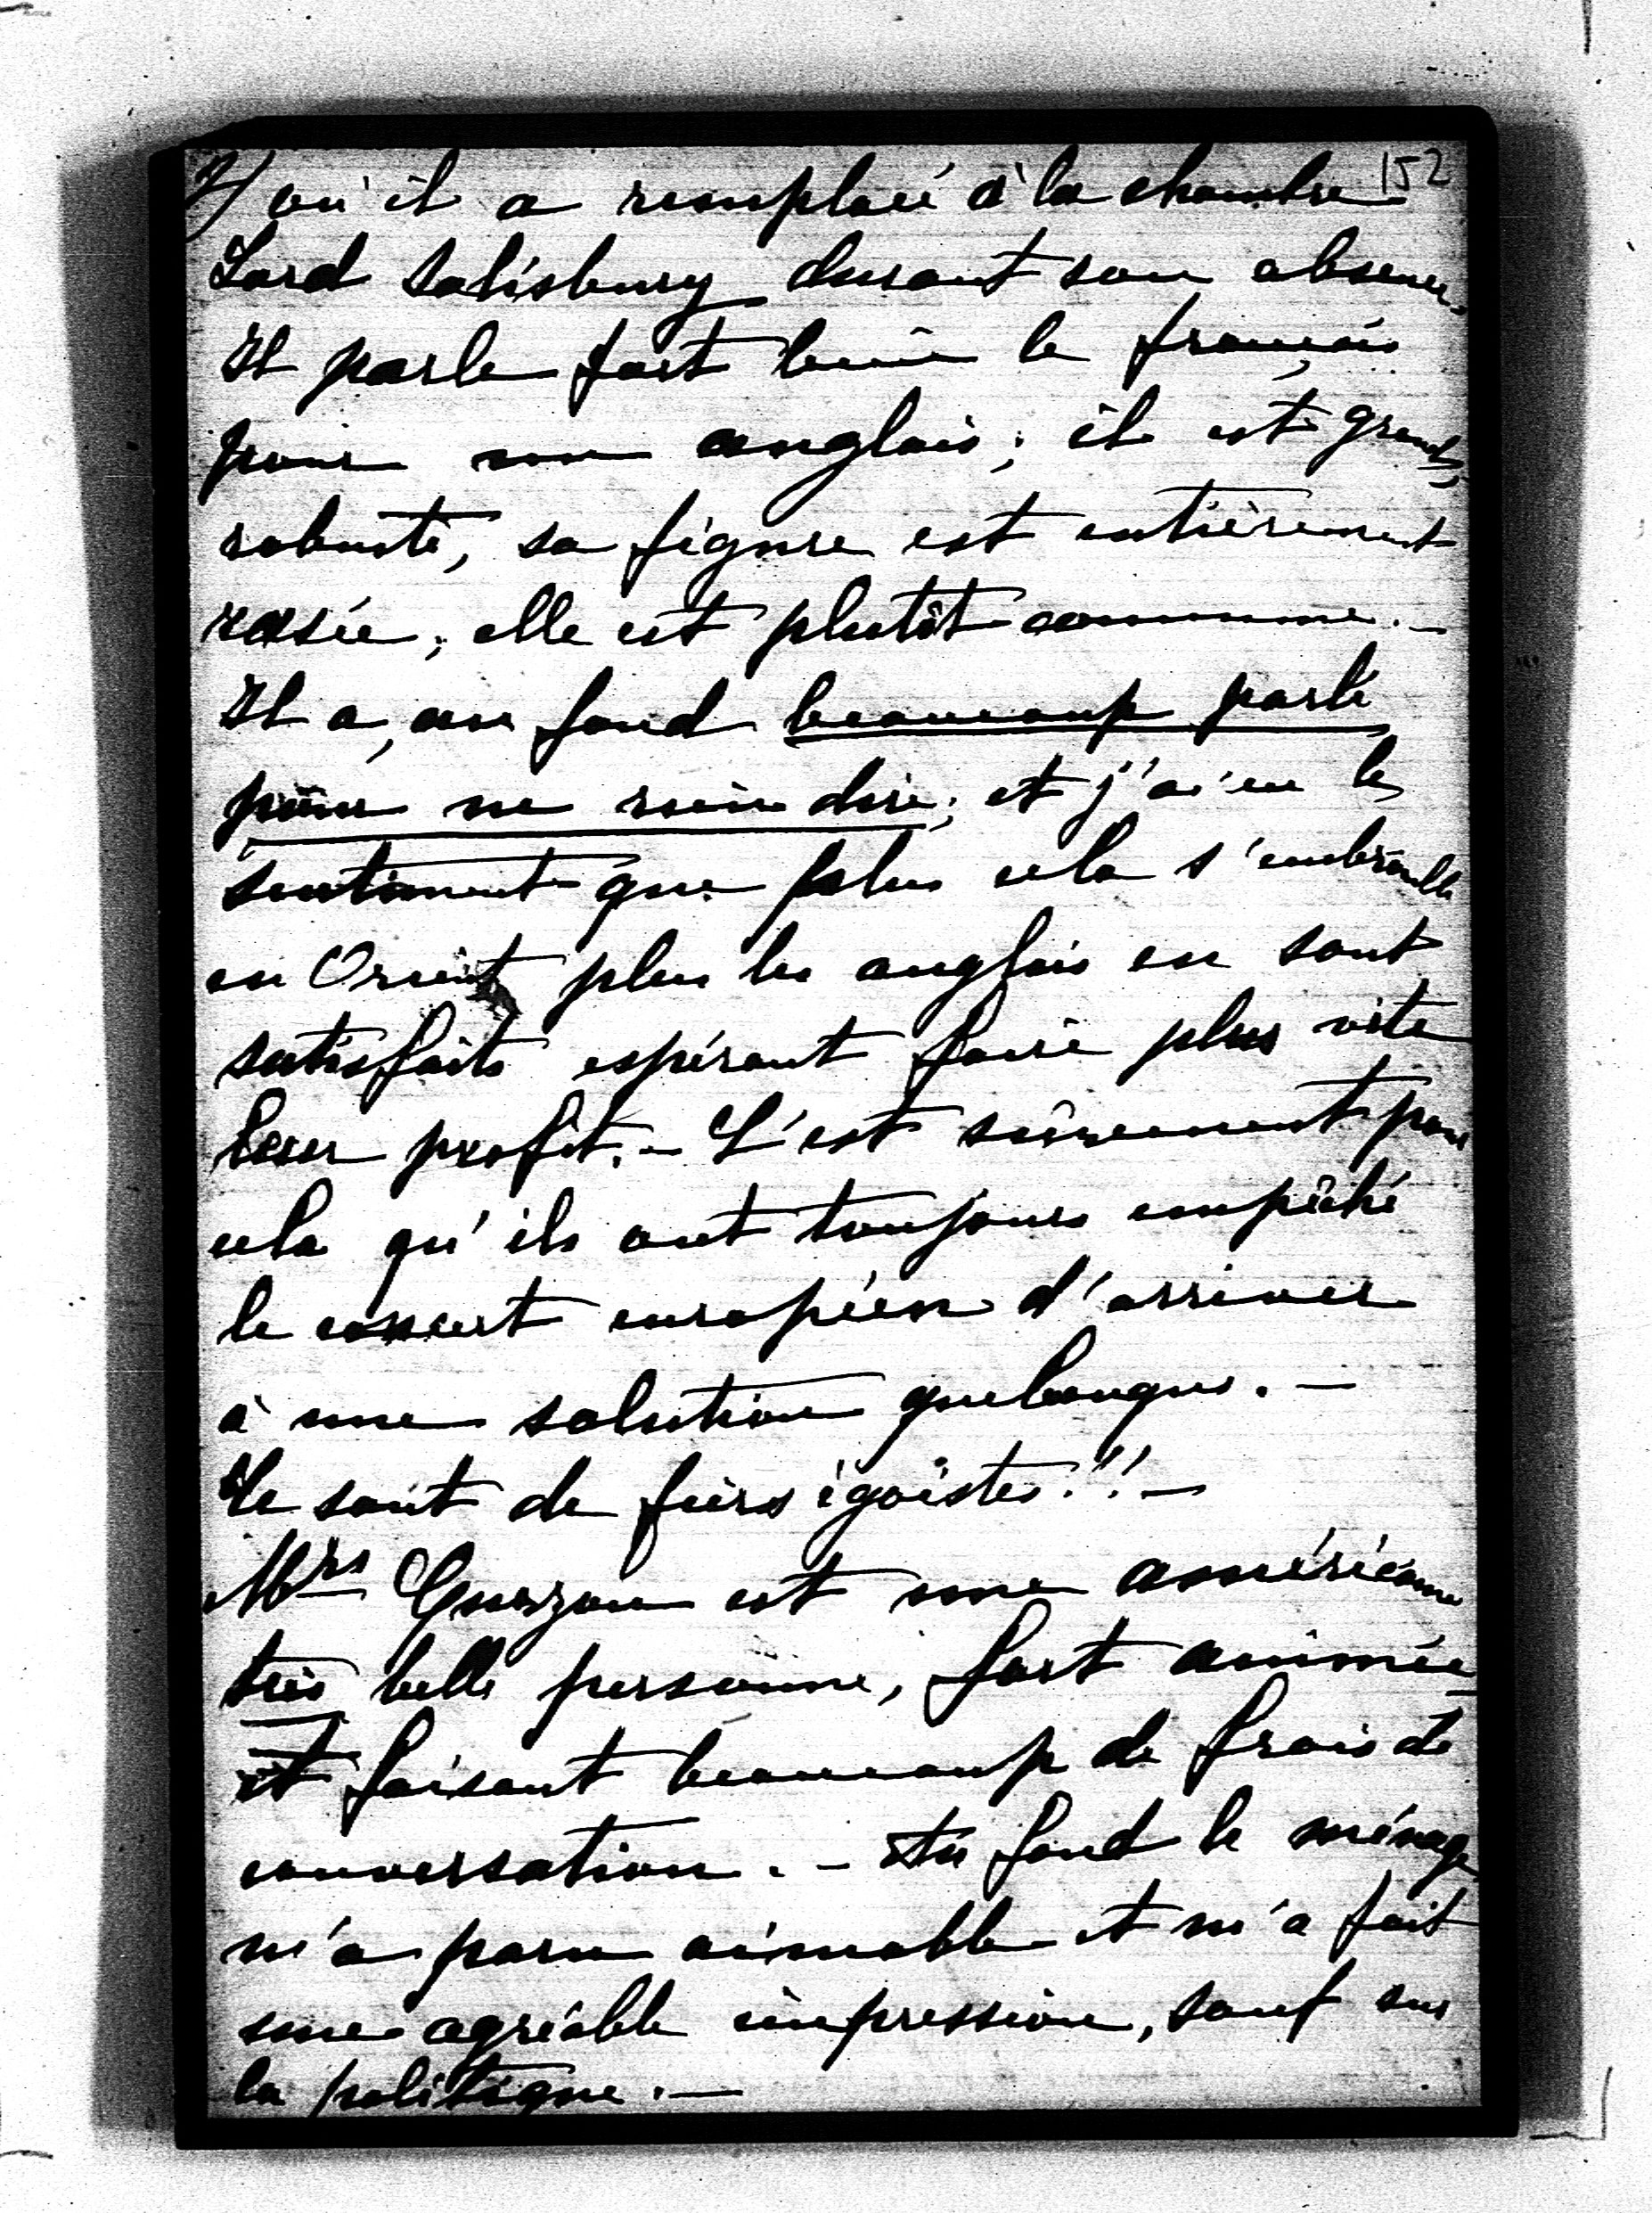 2/ où il a remplacé à la chambre 152
Lord Salisbury durant son absence.
Il parle fort bien le français
pour un anglais; il est grand,
robuste, sa figure est entièrement
rasée; elle est plutôt commune. -
Il a, au fond beaucoup parlé
pour ne rien dire; et j'ai eu le
sentiment que plus cela s'embrouille
en Orient plus les anglais en sont
satisfaits espérant faire plus vite
leur profit. - C'est sûrement pour
cela qu'ils ont toujours empêché
le concert européen d'arriver
à une solution quelconque. -
Ce sont de fiers égoïstes!! -
Mrs Curzon est une américaine
très belle personne, fort animée
et faisant beaucoup de frais de
conversation. - Au fond le ménage
m'a paru aimable et m'a fait
une agréable impression, sauf sur
la politique. -